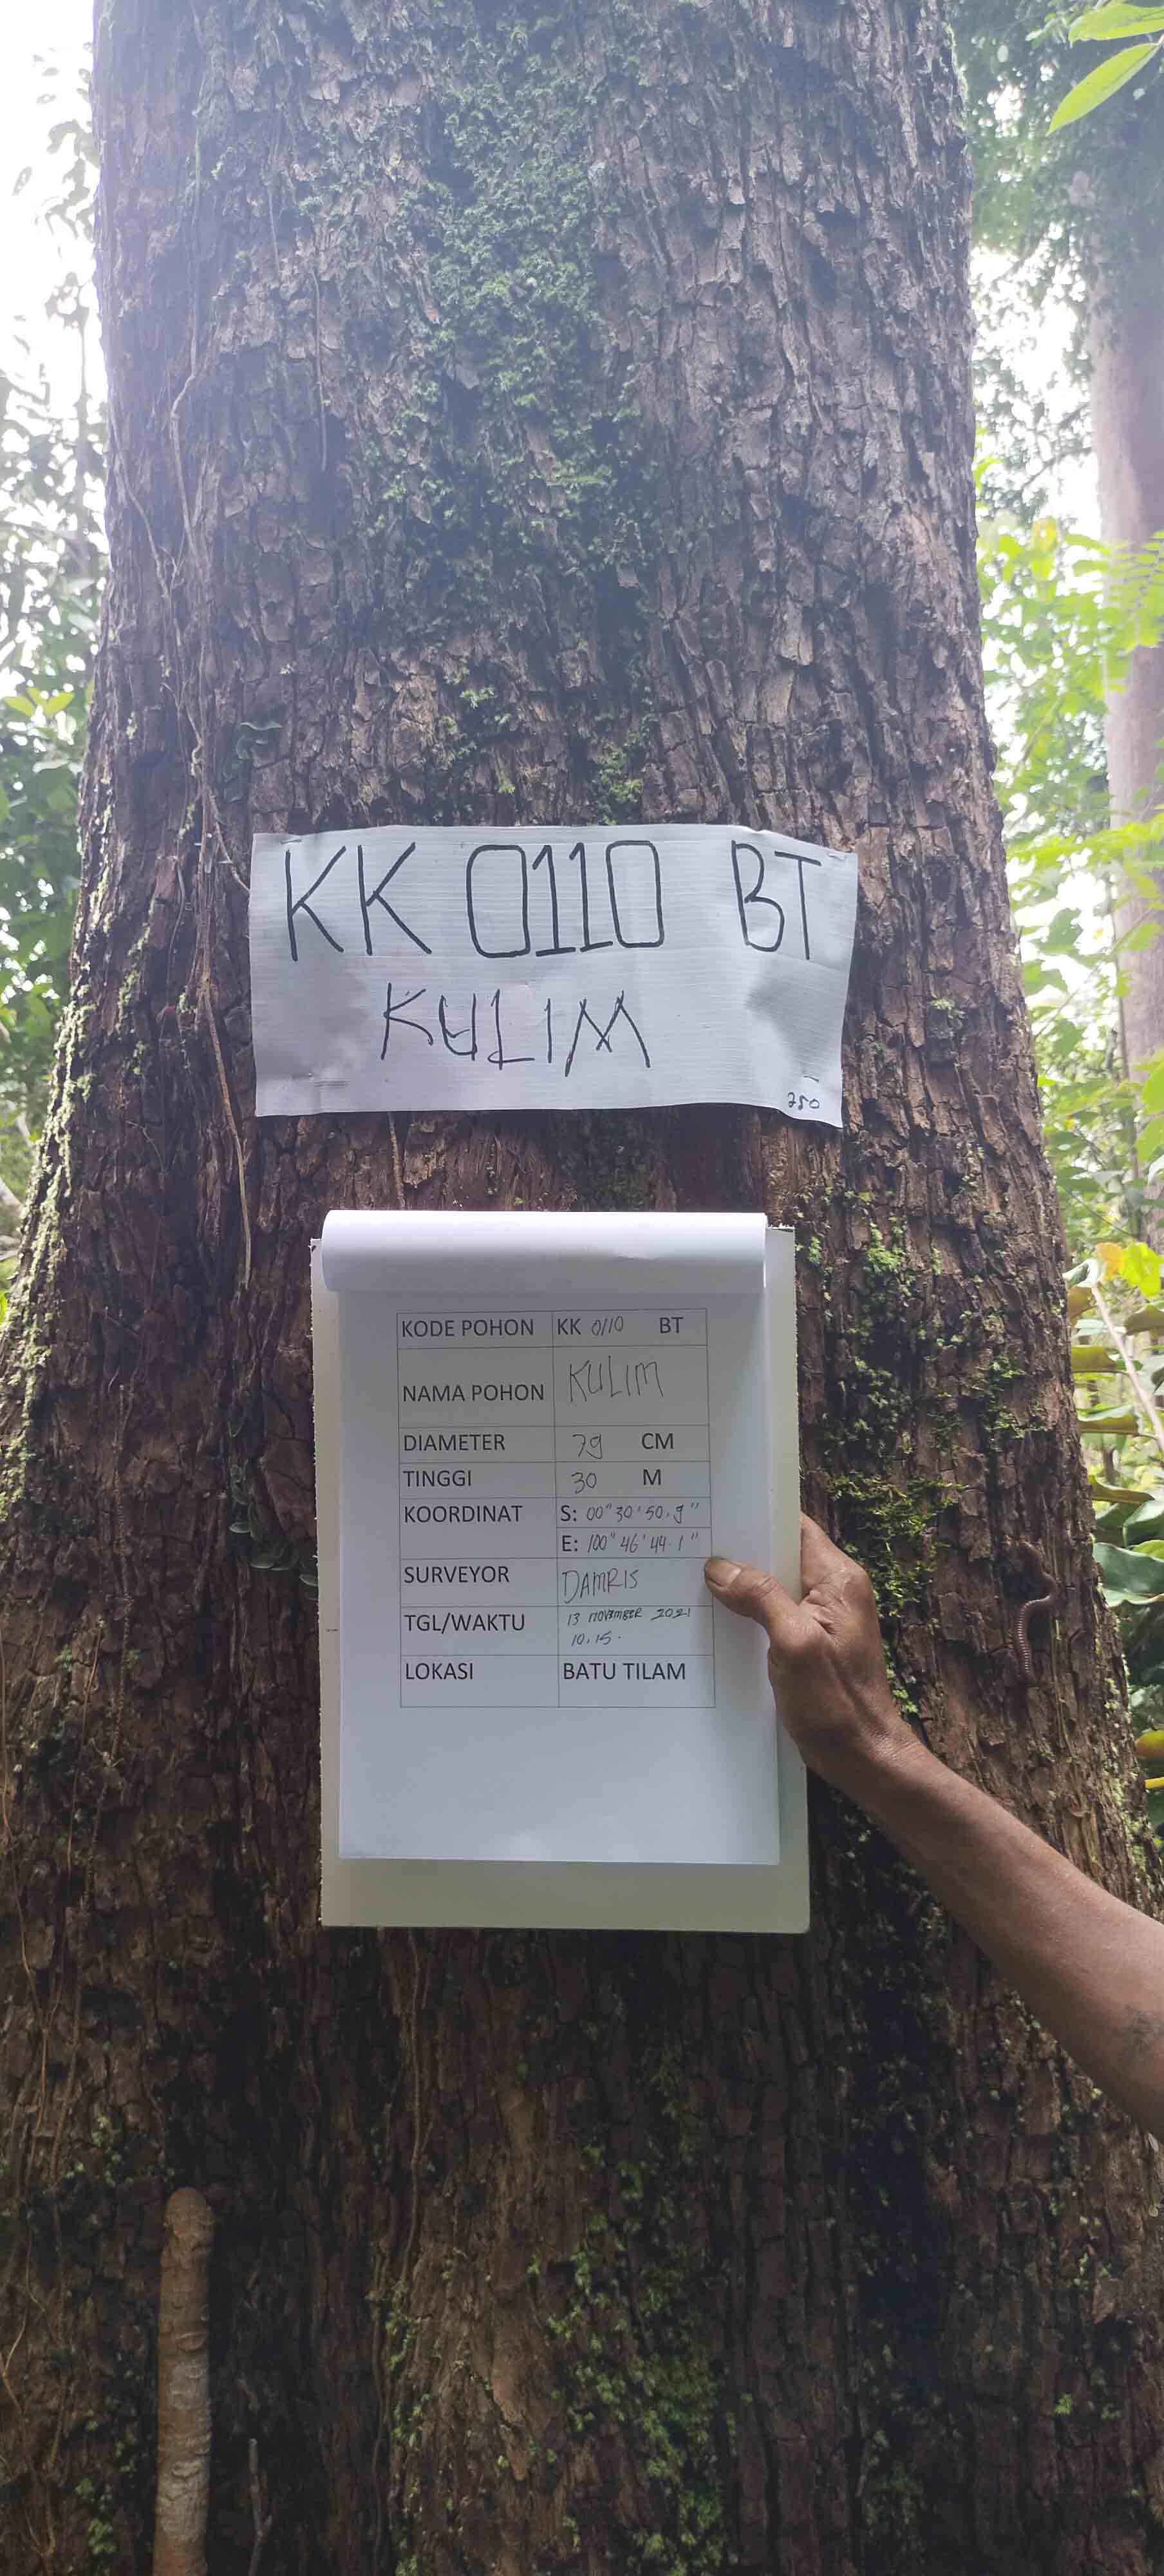 KK 0110 BT
KULIM
250
KODE POHON KK 0110 BT
NAMA POHON KULIM
DIAMETER 79 CM
TINGGI 30 M
KOORDINAT S: 00" 30' 50.9"
E: 100" 46' 44.1"
SURVEYOR DAMRIS
TGL/WAKTU 13 NOVEMBER 2021
10.15.
LOKASI BATU TILAM